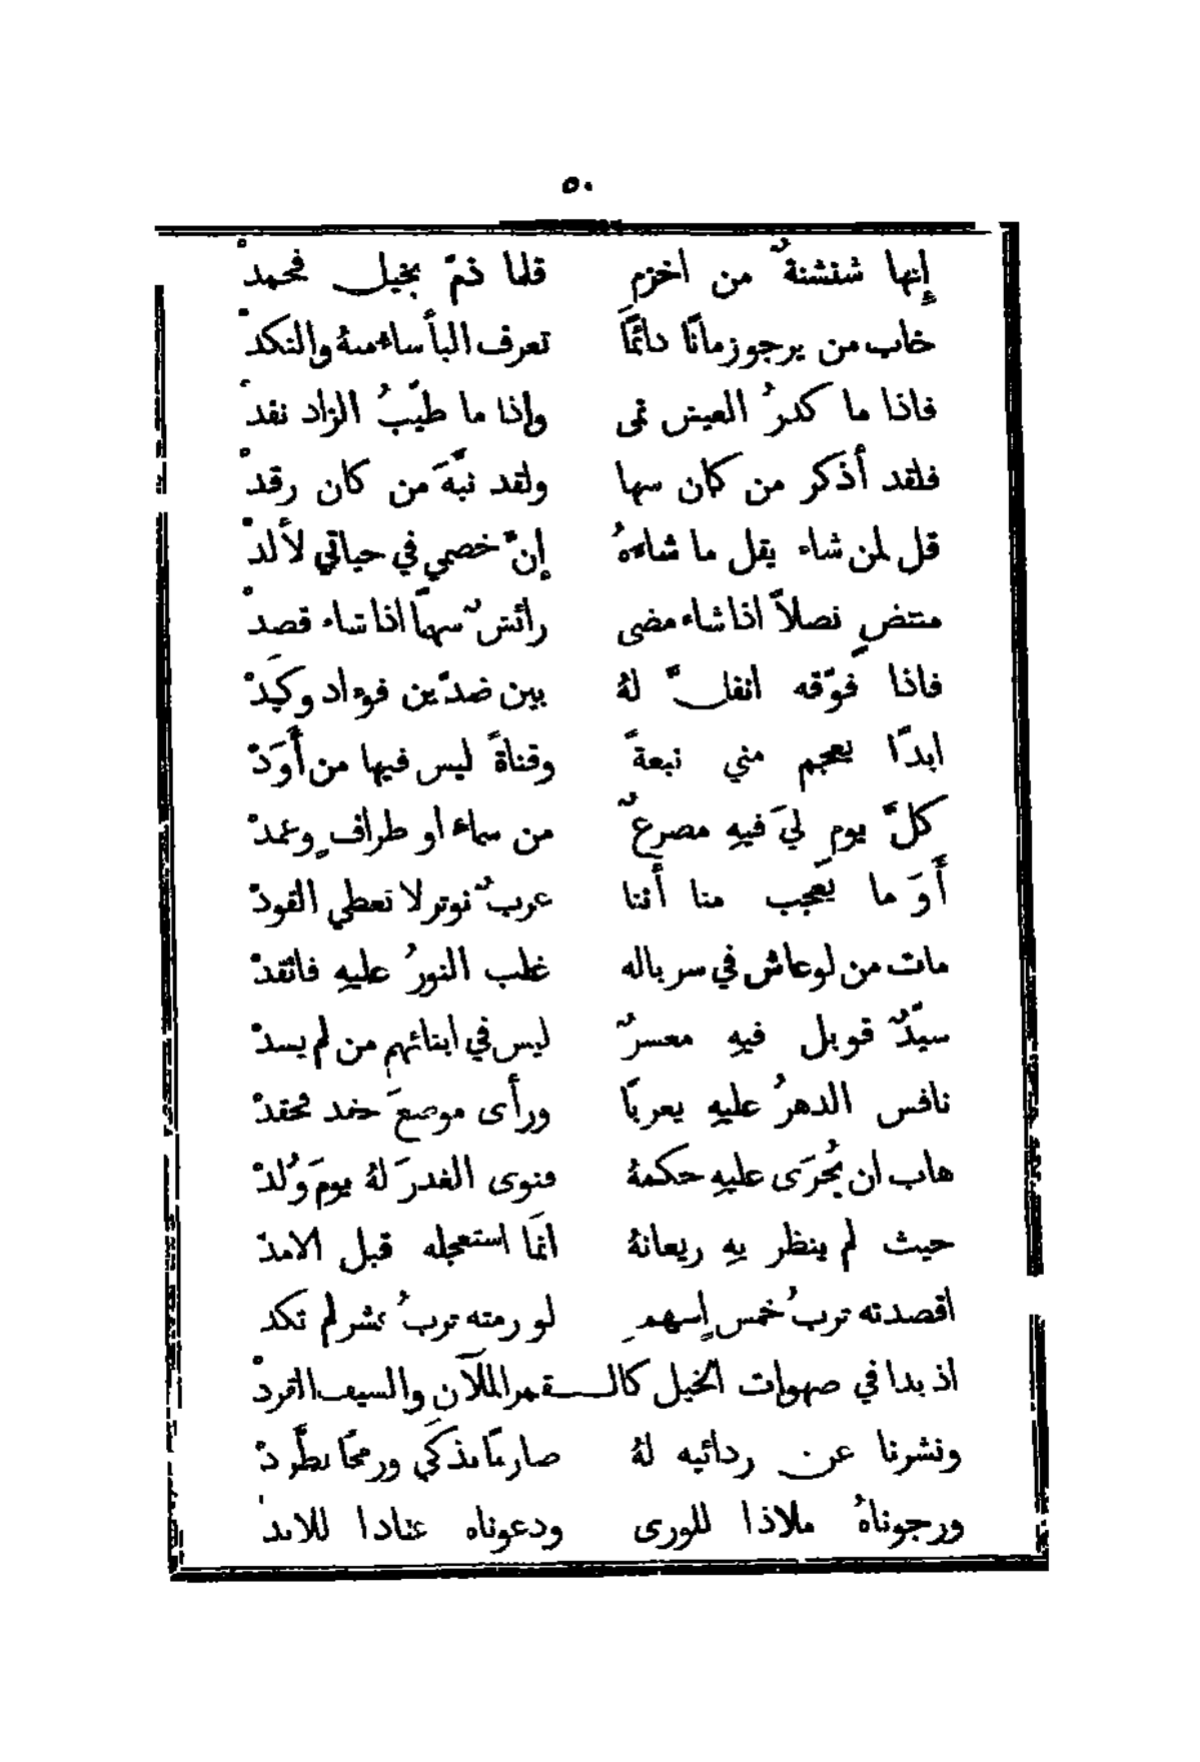 ٥٠
إنها شنشنةٌ من اخزم قلما ذمّ بخيل فحمدْ
خاب من يرجو زمانًا دائمًا تعرف البأساءُ منهُ والنكدْ
فاذا ما كدرُ العيش نمى وإذا ما طيّبُ الزاد نفدْ
فلقد أذكر من كان سها ولقد نبّهَ من كان رقدْ
قل لمن شاء يقل ما شاءهُ إنّ خصمي في حياتي لألدْ
منتضٍ نصلاً اذا شاء مضى رائشٌ سهمًا اذا شاء قصدْ
فاذا فوّقه انفلّ لهُ بين ضدّين فوءاد وكَبِدْ
ابدًا يعجم مني نبعةً وقناةً ليس فيها من أَوَدْ
كلَّ يوم ليَ فيهِ مصرعٌ من سماء او طرافٍ وعمدْ
أَوَ ما يَعجب منا أننا عربٌ نوتر لا نعطي القودْ
مات من لو عاش في سرباله غلب النورُ عليهِ فاتقدْ
سيّدٌ قوبل فيهِ معسرٌ ليس في ابنائهم من لم يسدْ
نافس الدهرُ عليهِ يعربًا ورأى موضعَ حقد فحقدْ
هاب ان يُجرَى عليهِ حكمهُ فنوى الغدرَ لهُ يومَ وُلدْ
حيث لم ينظر بهِ ريعانهُ انمَا استعجله قبل الامدْ
اقصدته تربُ خمس اسهمٍ لو رمته تربُ عشر لم تكد
اذ بدا في صهوات الخيل كالـقمر الملآن والسيف الفردْ
ونشرنا عن ردائيه لهُ صارمًا يذكَي ورمحًا يطَّردْ
ورجوناهُ ملاذا للورى ودعوناه عتادا للابد